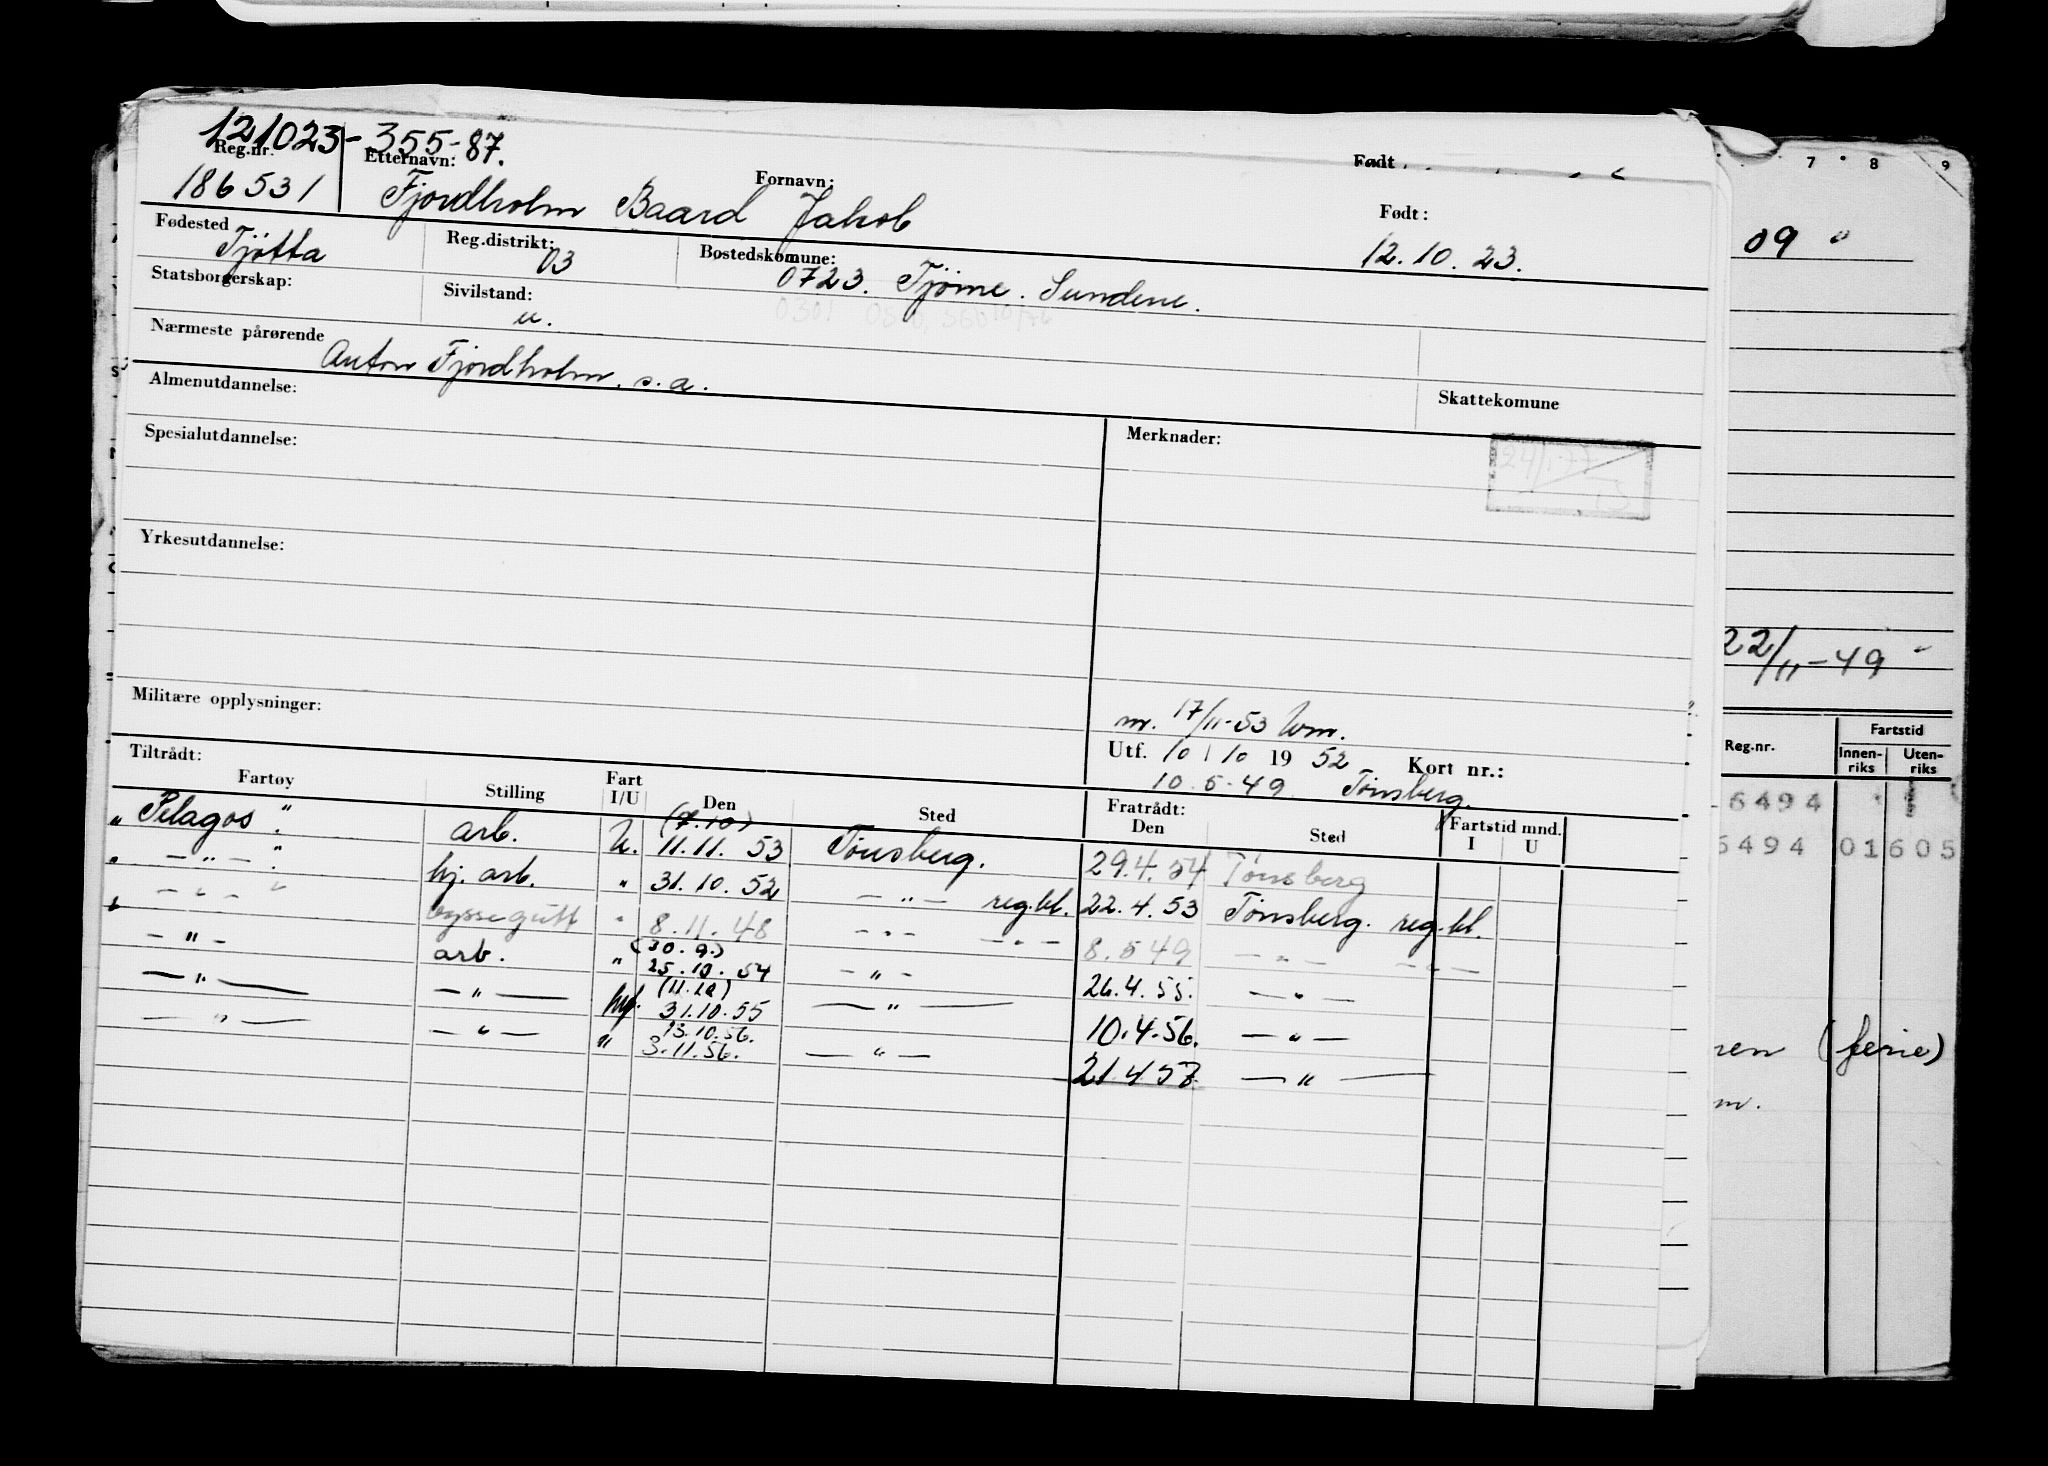 121023-355-87.
Reg.nr. Etternavn: Fornavn: Født
186531 Fjordholm Baard Jakob Født:
12.10.23.
Fødested Tjøtta Reg.distrikt: 03 Bostedskomune: 0723. Tjøme. Sundene.
Statsborgerskap: Sivilstand: u.
Nærmeste pårørende Anton Fjordholm. s. a.
Almenutdannelse: Skattekomune
Spesialutdannelse: Merknader:
24/1-77
Yrkesutdannelse:
Militære opplysninger:
m. 17/11-53
Utf. 10/10 1952 Kort nr.:
10.5-49 Tønsberg.
Tiltrådt: Fratrådt:
Fartøy Stilling Fart I/U Den Sted Den Sted Fartstid mnd. I U
„Pelagos". arb. U. (7.10) 11.11.53 Tønsberg. 29.4.54 Tønsberg
„ — " — ". hj. arb. " 31.10.52 — " — reg.bl. 22.4.53 Tønsberg. reg.bl.
„ — " — " byssegutt " 8.11.48 — " — — " — 8.5 49 — " — — " —
— " — arb. " (30.9.) 25.10.54 — " — 26.4.55. — " —
— " — — " — (11.10) 31.10.55 — " — 10.4.56. — " —
— " — — " — " 13.10.56. 3.11.56. — " — 21.4.57. — " —
7 8 9
09 "
22/11-49 "
Reg.nr. Fartstid
Innen-riks Uten-riks
6494
6494 01605
(ferie)